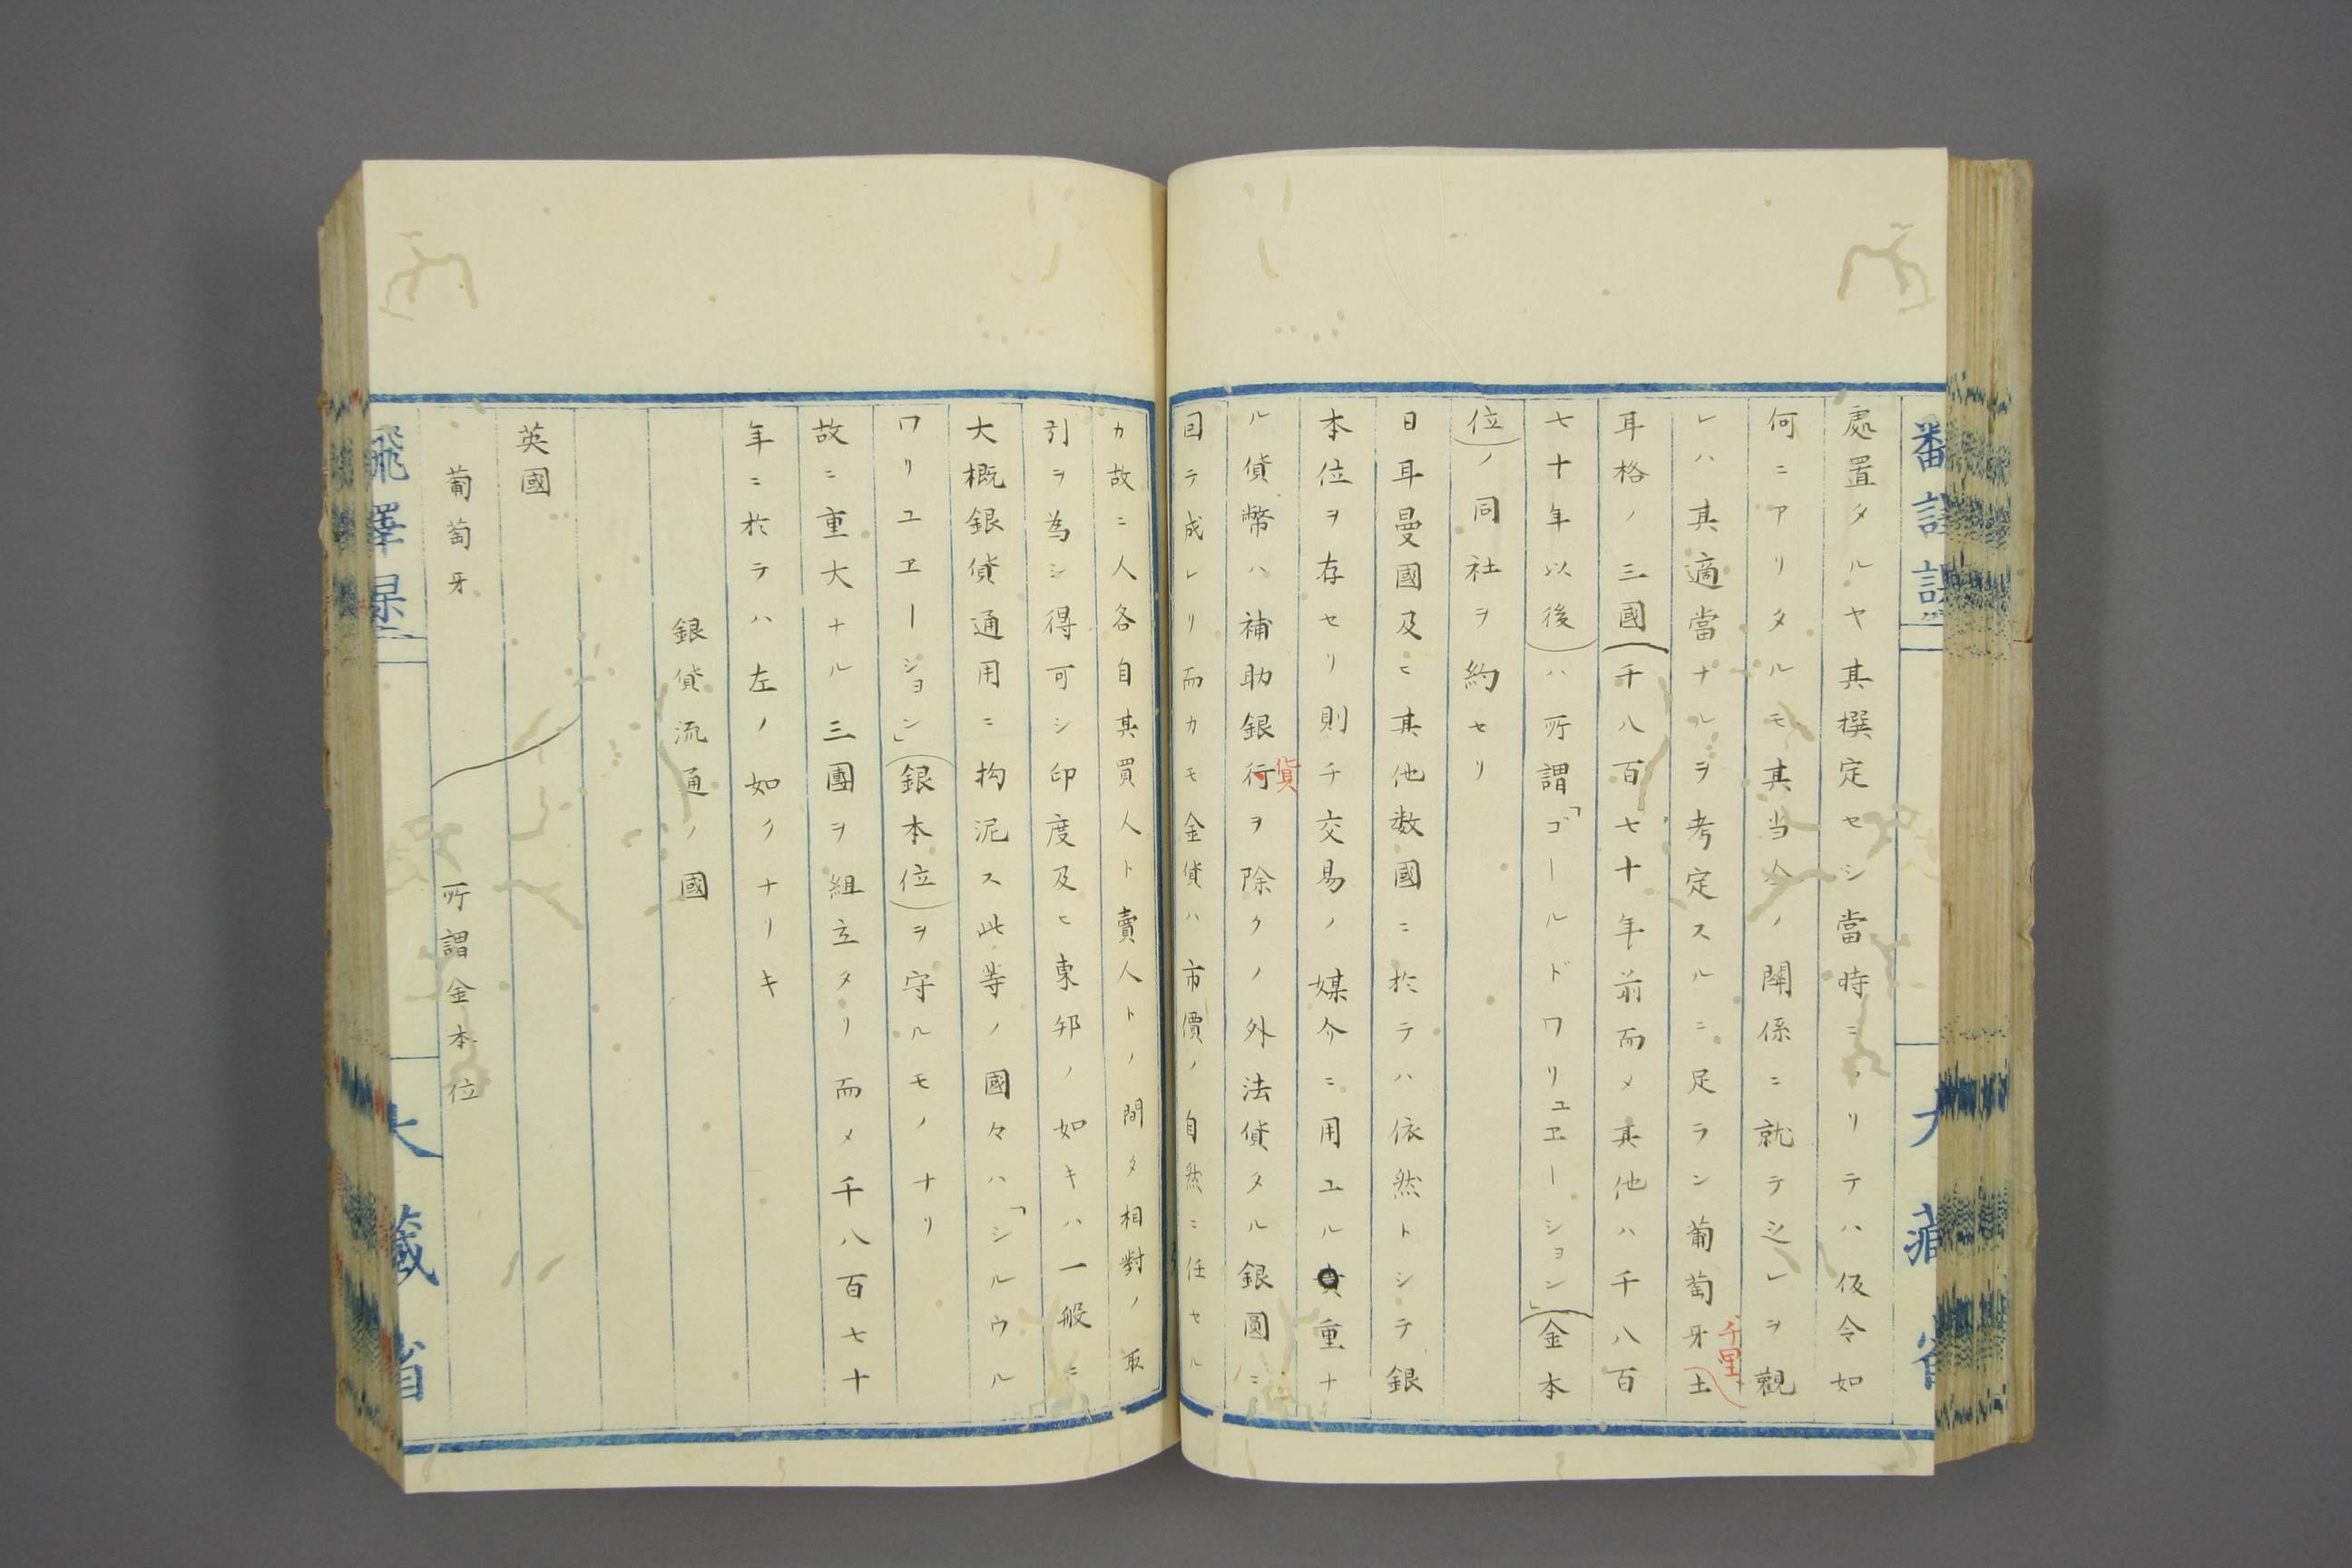 處置タルヤ其撰定セシ當時ニアリテハ仮令如
何ニアリタルモ其当今ノ關係ニ就テ之レヲ觀
レハ其適當ナルヲ考定スルニ足ラン葡萄牙土
千里
耳格ノ三國(千八百七十年前而メ其他ハ千八百
七十年以後)ハ所謂「ゴールドワリュエーション」(金本
位)ノ同社ヲ約セリ
日耳曼國及ヒ其他数國ニ於テハ依然トシテ銀
本位ヲ存セリ則チ交易ノ媒介ニ用ユル重ナ
ル貨幣ハ補助銀行ヲ除クノ外法貨タル銀圓ニ
貨
囙テ成レリ而カモ金貨ハ市價ノ自然ニ任セル
カ故ニ人各自其買人ト賣人トノ間タ相對ノ取
引ヲ為シ得可シ印度及ヒ東邦ノ如キハ一般ニ
大概銀貨通用ニ拘泥ス此等ノ國々ハ「シルウル
ワリユエーション」(銀本位)ヲ守ルモノナリ
故ニ重大ナル三團ヲ組立タリ而メ千八百七十
年ニ於テハ左ノ如クナリキ
銀貨流通ノ國
英國
葡萄牙 所謂金本位
大藏省